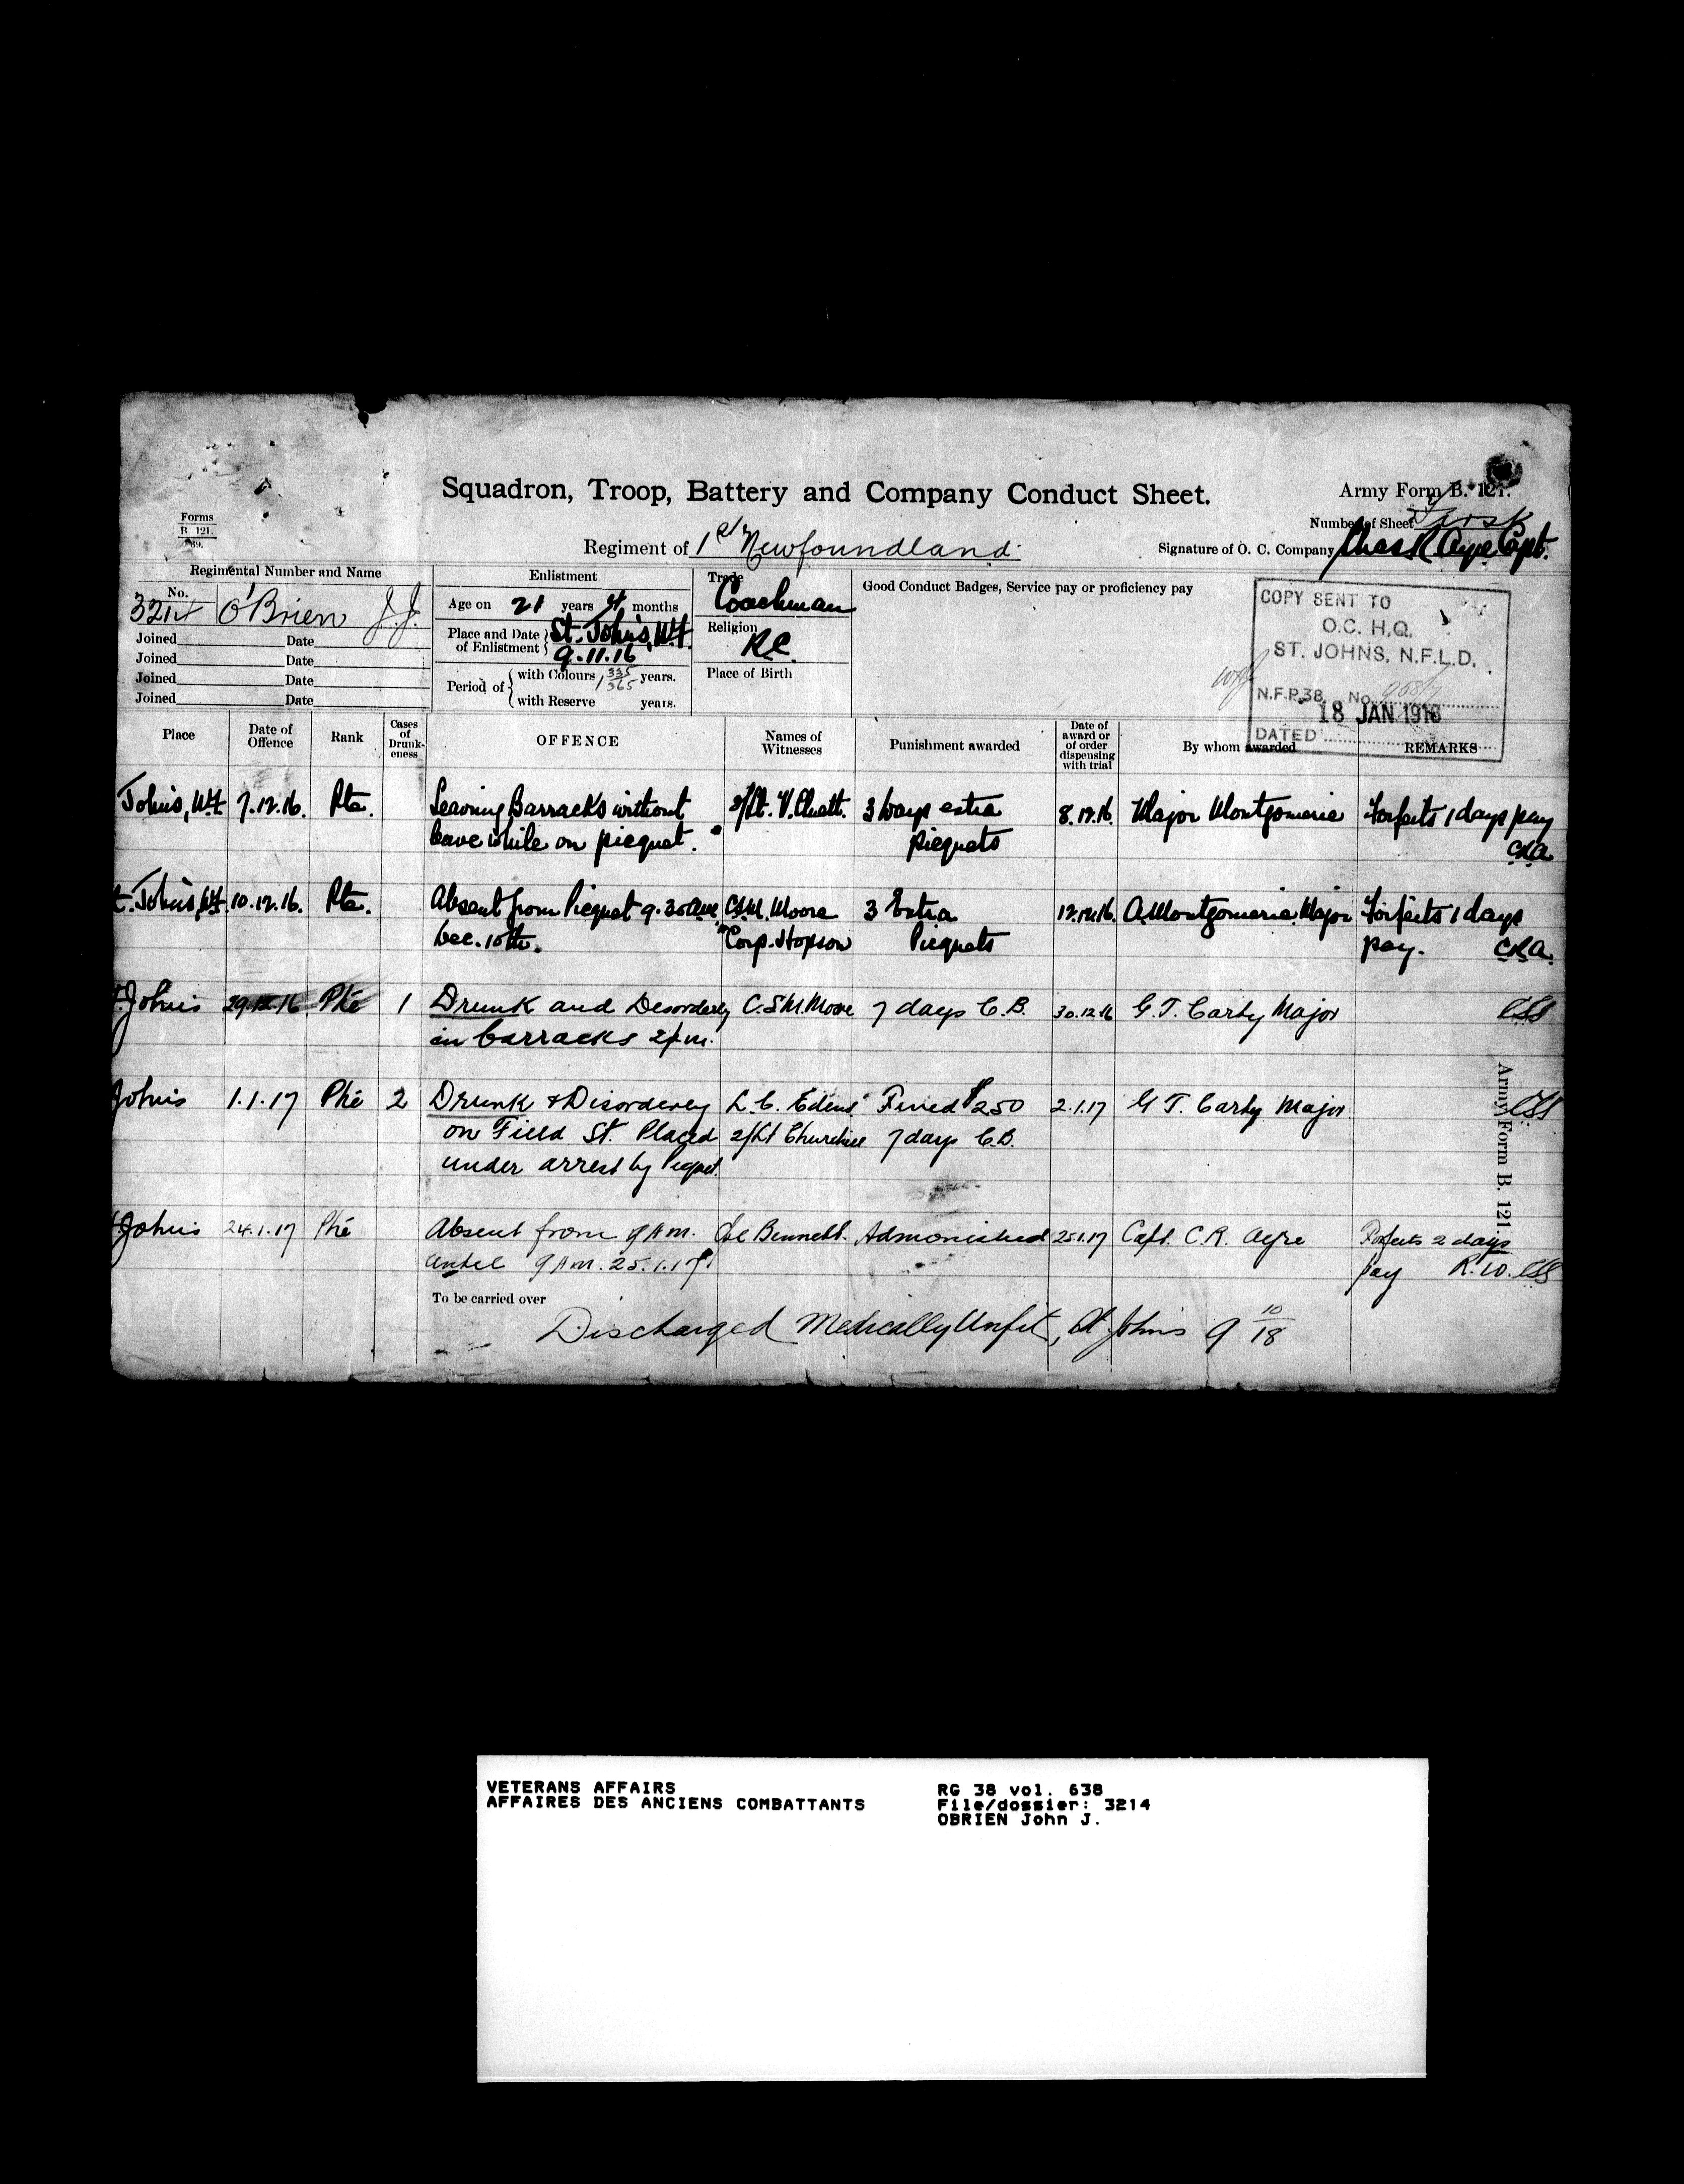 Squadron, Troop, Battery and Company Conduct Sheet.
Army Form B. 121.
Forms
B. 121.
Number of Sheet First
Regiment of 1st Newfoundland
Signature of O. C. Company Chas R Ayre Capt.
Regimental Number and Name
No.
3214 O'Brien J.J.
Joined Date
Joined Date
Joined Date
Joined Date
Enlistment
Age on 21 years 4 months
Place and Date of Enlistment St. John's, Nfl.
9.11.16
Period of with Colours 1 335/365 years.
with Reserve years.
Trade
Coachman
Religion
RC.
Place of Birth
Good Conduct Badges, Service pay or proficiency pay
COPY SENT TO
O.C. H.Q.
ST. JOHNS, N.F.L.D.
N.F.P.38 No.
18 JAN 1918
DATED
Place
Date of Offence
Rank
Cases of Drunk-eness
OFFENCE
Names of Witnesses
Punishment awarded
Date of award or of order dispensing with trial
By whom awarded
REMARKS
Johns, Nfl 7.12.16. Pte. Leaving Barracks without 3 Days extra 8.12.16. Major Montgomerie Forfeits 1 days pay
leave while on picquet. picquets CRA
t. Johns, Nfl. 10.12.16. Pte. Absent from Picquet 9.30 am C.S.M. Moore 3 Extra 12.12.16. A. Montgomerie Major Forfeits 1 days
Dec. 10th. Corp. Hopson Picquets pay. CRA.
Johns 29.12.16 Pte 1 Drunk and Disorderly C.S.M. Moore 7 days C.B. 30.12.16 G.T. Carty Major
in barracks 2 pm.
Johns 1.1.17 Pte 2 Drunk & Disorderly L.C. Edens Fined $2.50 2.1.17 G T. Carty Major
on Field St. Placed 2/Lt Churchill 7 days C.B.
under arrest by Picquet.
Johns 24.1.17 Pte Absent from 9 AM. Bennett. Admonished 25.1.17 Capt. C.R. Ayre Forfeits 2 days
until 9 AM. 25.1.17 pay R.W.
To be carried over
Discharged Medically Unfit, St Johns 9 10/18
Army Form B. 121.
VETERANS AFFAIRS
AFFAIRES DES ANCIENS COMBATTANTS
RG 38 vol. 638
File/dossier: 3214
OBRIEN John J.